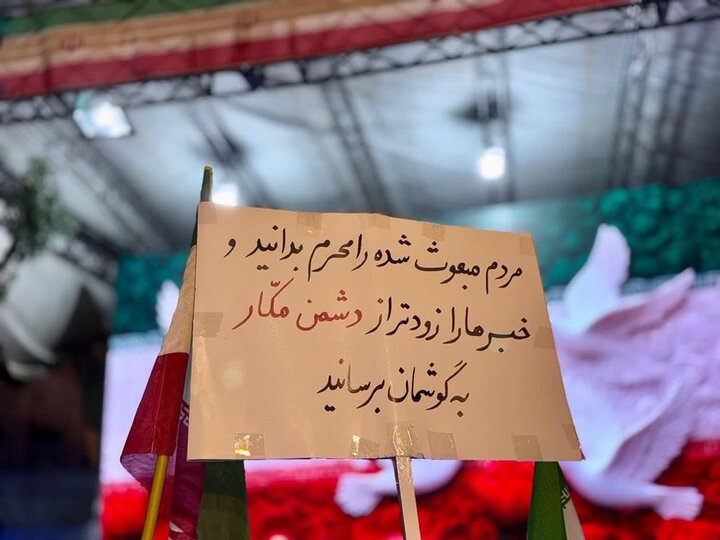 مردم مبعوث شده را محرم بدانید و
خبرها را زودتر از دشمن مکّار
به گوشمان برسانید